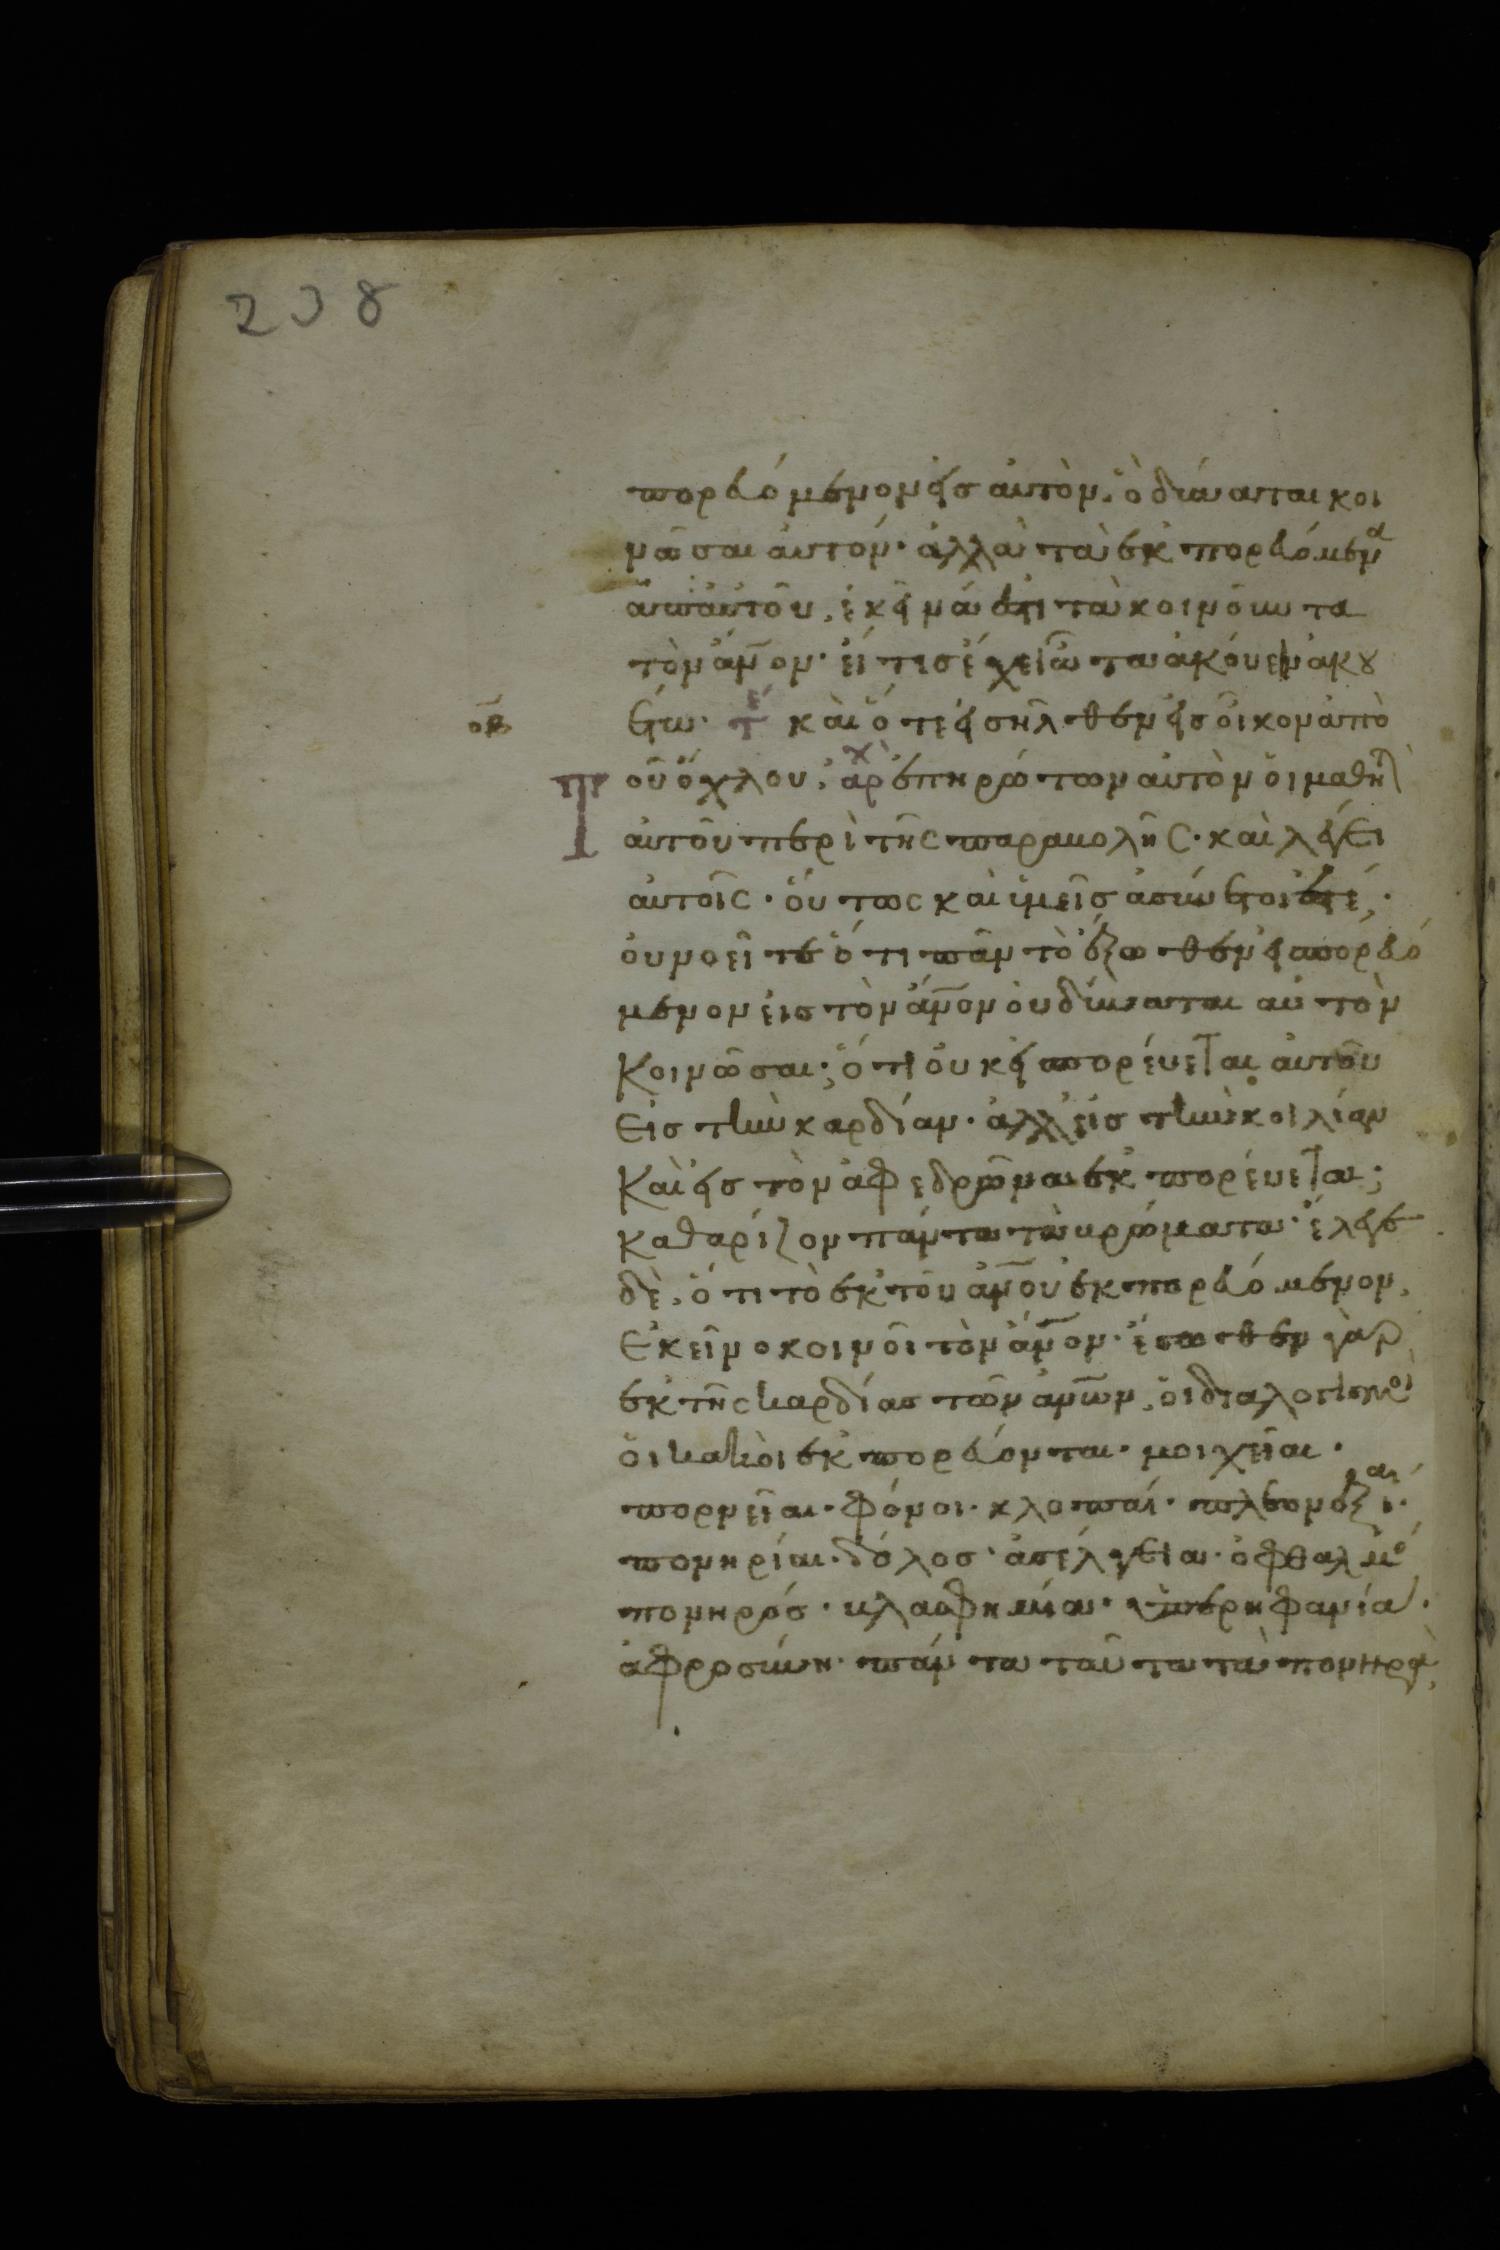 238
πορευόμενον εἰς αὐτὸν, ὃ δύναται κοι
νῶσαι αὐτόν· ἀλλὰ τὰ ἐκπορευόμεν^α
ἀπ' αὐτοῦ, ἐκεῖνά ἐστι τὰ κοινοῦντα
τὸν ἄν̅ον· εἴ τις ἔχει ὦτα ἀκούειν ἀκου
οβ έτω· τέ καὶ ὅτε εἰσῆλθεν εἰς οἶκον ἀπὸ
Τοῦ ὄχλου, ἀρχ ἐπηρώτων αὐτὸν οἱ μαθητ
αὐτοῦ περὶ τῆς παραβολῆς· καὶ λέγει
αὐτοῖς· οὕτως καὶ ὑμεῖς ἀσύνετοί ἐστέ,·
οὐ νοεῖτε ὅτι πᾶν τὸ ἔξωθεν εἰσπορευό
μενον εἰς τὸν ἄν̅ον οὐ δύναται αὐτὸν
κοινῶσαι; ὅτι οὐκ εἰσπορεύεται αὐτοῦ
εἰς τὴν καρδίαν· ἀλλ' εἰς τὴν κοιλίαν
καὶ εἰς τὸν ἀφεδρῶνα ἐκπορεύεται;
καθαρίζον πάντα τὰ βρώματα· ἔλεγε
δὲ, ὅτι τὸ ἐκ τοῦ ἀν̅ου ἐκπορευόμενον,
ἐκεῖνο κοινοῖ τὸν ἄν̅ον· ἔσωθεν γὰρ
ἐκ τῆς καρδίας τῶν ἀν̅ων, οἱ διαλογισμοὶ
οἱ κακοὶ ἐκπορεύονται· μοιχεῖαι·
πορνεῖαι· φόνοι· κλοπαί· πλεονεξίαι·
πονηρίαι· δόλος· ἀσέλγεια· ὀφθαλμὸ
πονηρός· βλασφημία· ὑπερηφανία·
ἀφροσύνη· πάντα ταῦτα τὰ πονηρὰ,